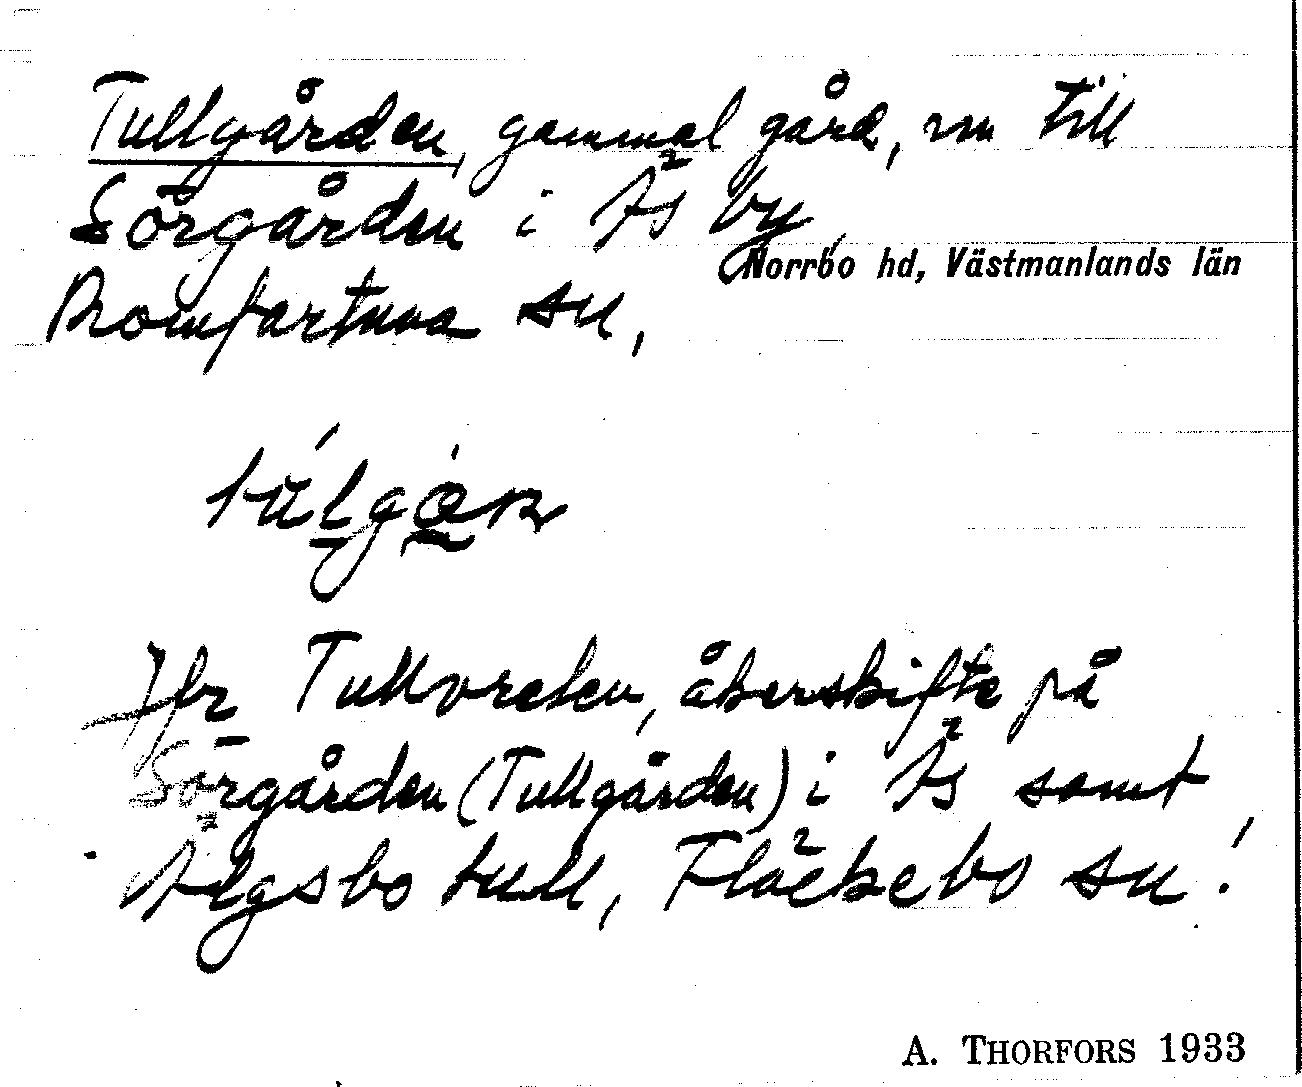 Tullgården, gammal gård, nu till
Sörgården i Äs by,
Norrbo hd, Västmanlands län
Romfartuna sn,
Jfr Tullvreten, åkerskifte på
Sörgården (Tullgården) i Äs samt
Älgsbo tull, Fläckebo sn!
A. THORFORS 1933